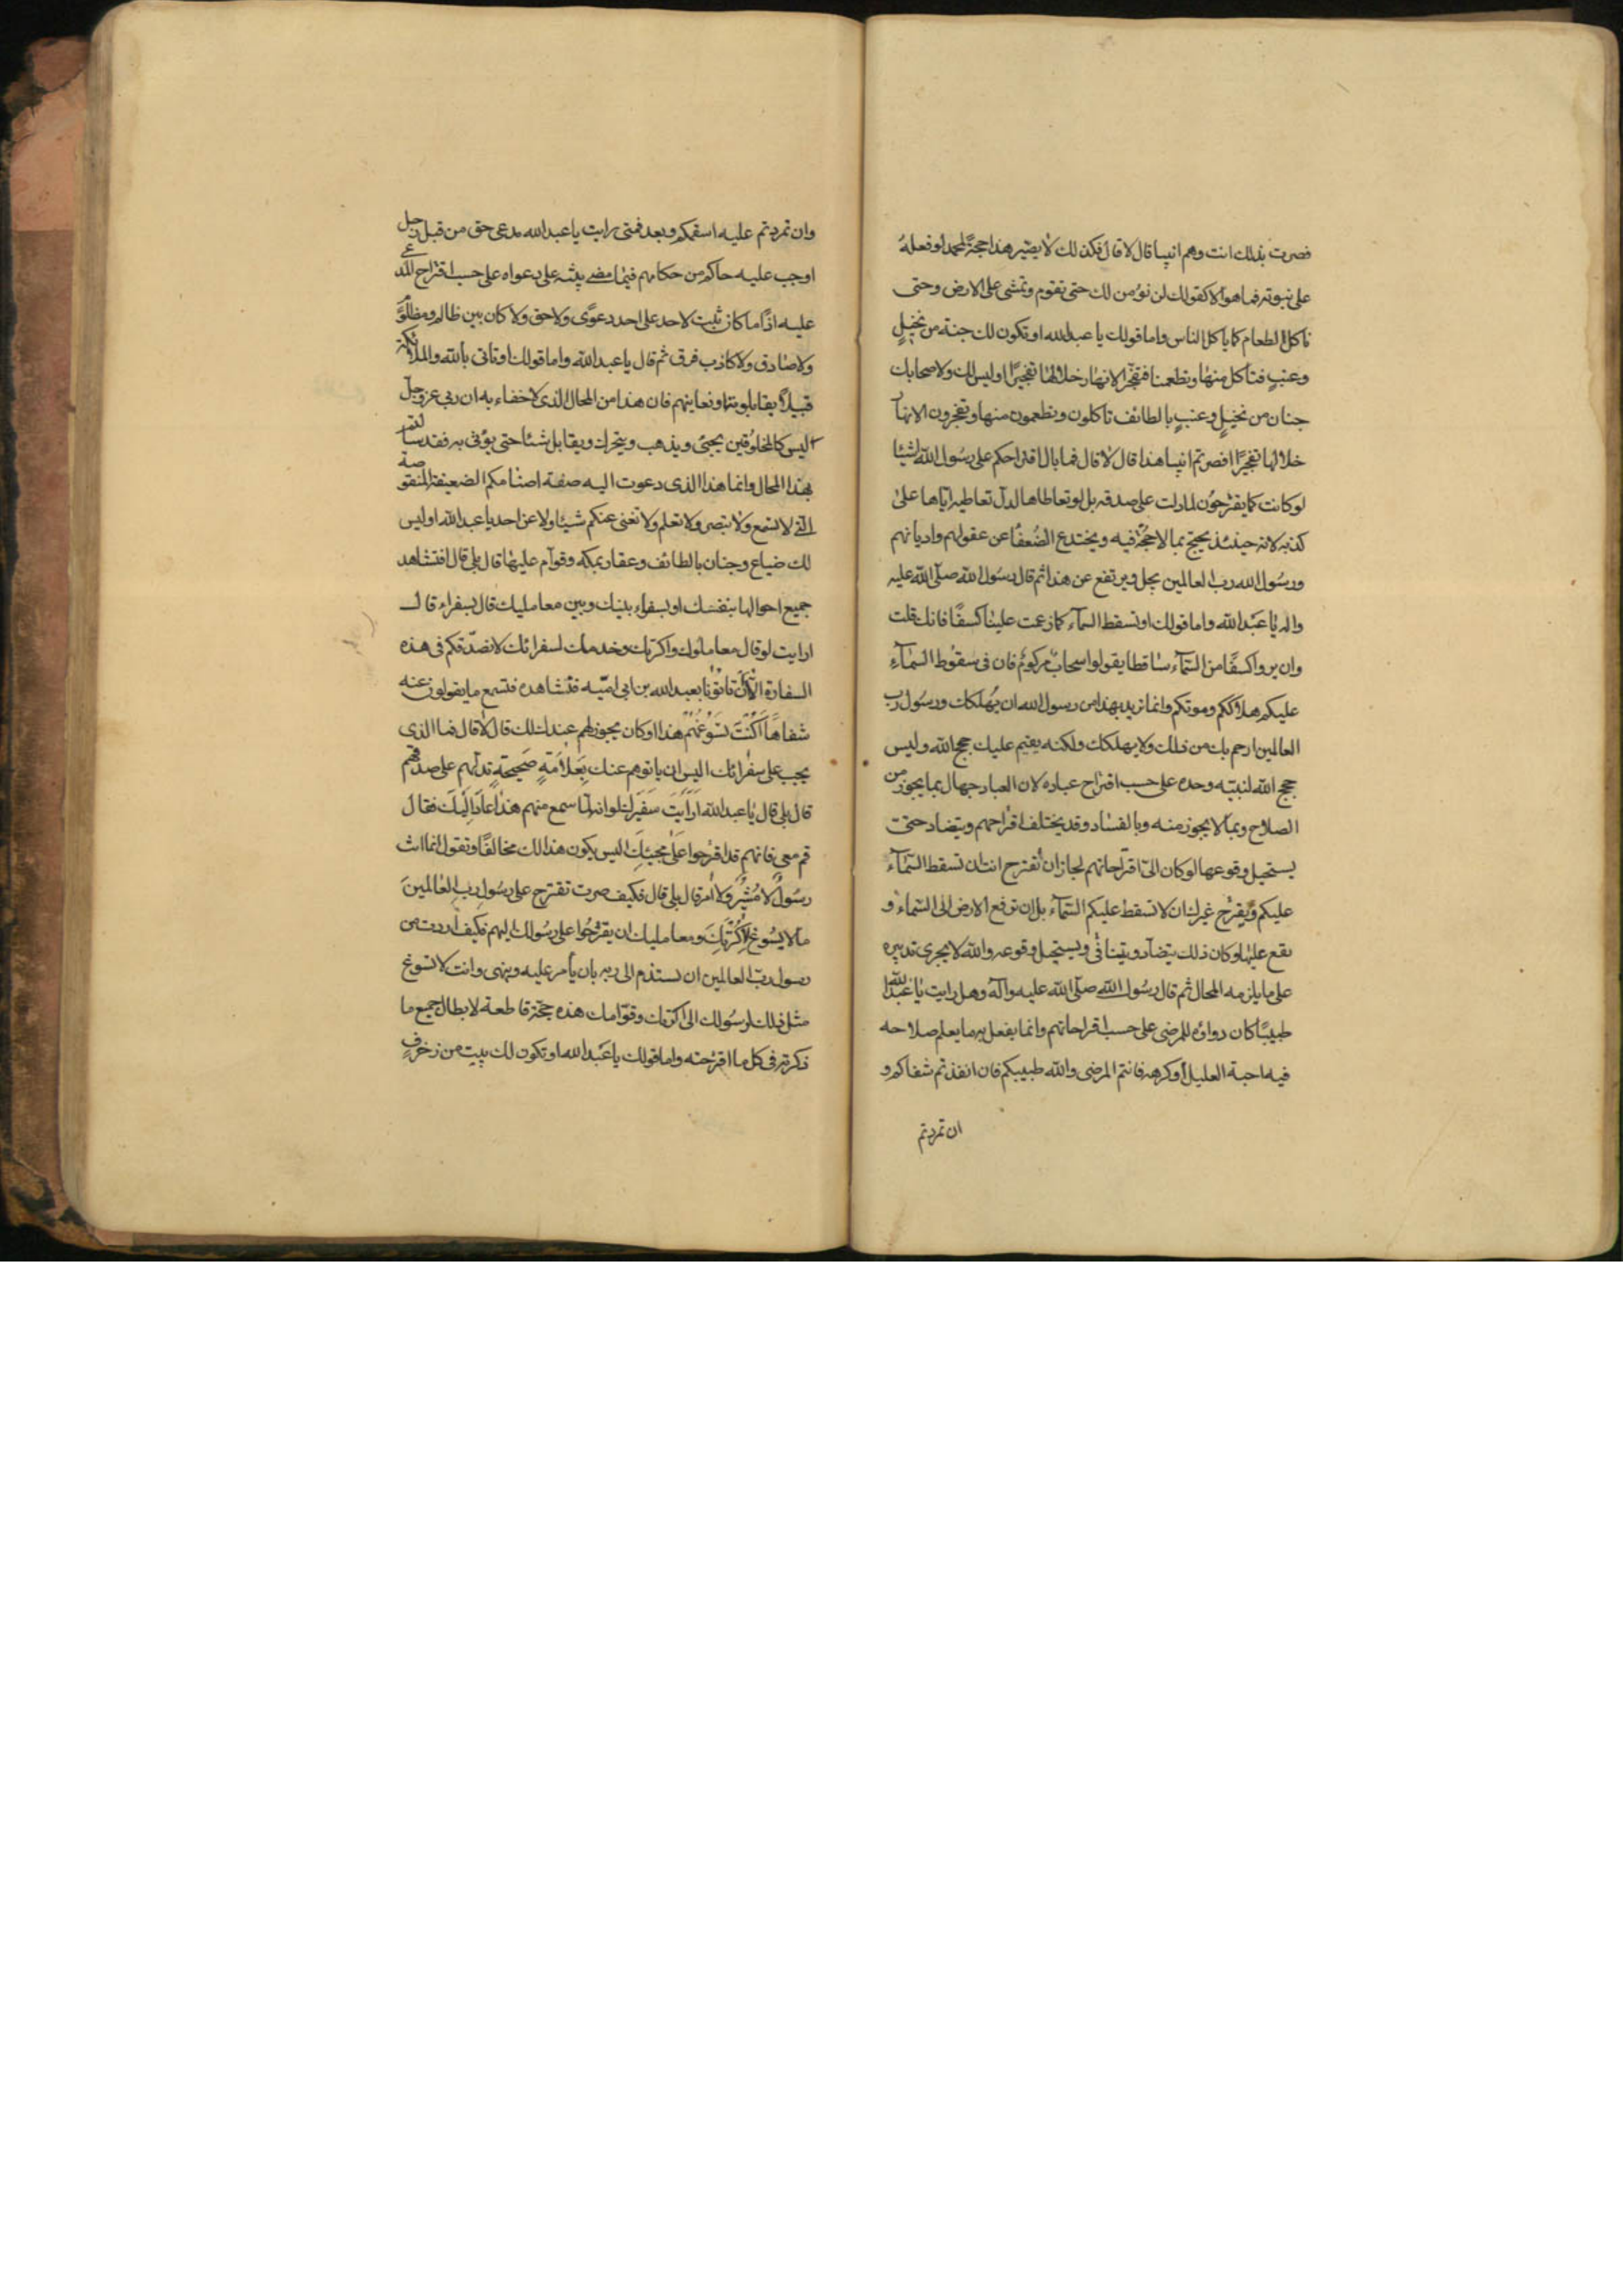 فصرت بذلك انت وهم انبيا قال لا قال فكذلك لا يصير هذا حجة لمحمد لو فعله
على نبوته فما هو الا كقولك لن نؤمن لك حتى تقوم وتمشى على الارض وحتى
تاكل الطعام كما ياكل الناس واما قولك يا عبد الله او تكون لك جنة من نخيلٍ
وعنبٍ فتاكل منها وتطعمنا فتفجر الانهار خلالها تفجيرًا او ليس لك ولاصحابك
جنان من نخيلٍ وعنبٍ بالطائف تاكلون وتطعمون منها وتفجرون الانهار
خلالها تفجيرًا افصرتم انبيا هذا قال لا قال فما بال اقتراحكم على رسول الله اشيئا
لو كانت كما يقترحون لما دلت على صدقه بل لو تعاطاها لدل تعاطيه اياها على
كذبه لانه حينئذ يحتج بما لا حجة فيه ويختدع الضعفا عن عقولهم واديانهم
ورسول الله رب العالمين يجل ويرتفع عن هذا ثم قال رسول الله صلى الله عليه
واله يا عبد الله واما قولك او تسقط السمآء كما زعمت علينا كسفًا فانك قلت
وان يروا كسفًا من السمآء ساقطا يقولوا سحابٌ مركومٌ فان فى سقوط السمآءِ
عليكم هلاككم وموتكم وانما تريد بهذا من رسول الله ان يهلكك ورسول رب
العالمين ارحم بك من ذلك ولا يهلكك ولكنه يقيم عليك حجج الله وليس
حجج الله لنبيه وحده على حسب اقتراح عباده لان العباد جهال بما يجوز من
الصلاح وبما لا يجوز منه وبالفساد وقد يختلف اقتراحهم ويتضاد حتى
يستحيل وقوعها لو كان الى اقتراحاتهم لجاز ان تقترح انت ان تسقط السمآء
عليكم ويقترح غيرك ان لا تسقط عليكم السمآء بل ان ترفع الارض الى السمآء و
تقع عليها وكان ذلك يتضاد ويتنافى ويستحيل وقوعه والله لا يجرى تدبيره
على ما يلزمه المحال ثم قال رسول الله صلى الله عليه وآله وهل رايت يا عبد الله
طبيبًا كان دواؤه للمرضى على حسب اقتراحاتهم وانما يفعل به ما يعلم صلاحه
فيه احبه العليل او كرهه فانتم المرضى والله طبيبكم فان انفذتم شفاكم و
ان تمردتم
وان تمردتم عليه اسقمكم وبعد فمتى رايت يا عبد الله مدعى حق من قبل رجل
اوجب عليه حاكم من حكامهم فيما مضى بينة على دعواه على حسب اقتراح المدعى
عليه اذًا ما كان يثبت لاحد على احد دعوًى ولا حق ولا كان بين ظالم ومظلوم
ولا صادق ولا كاذب فرق ثم قال يا عبد الله واما قولك او تاتى بالله والملائكة
قبيلًا يقابلوننا ونعاينهم فان هذا من المحال الذى لا خفاء به ان ربى عز وجل
ليس كالمخلوقين يجئ ويذهب ويتحرك ويقابل شئا حتى يؤتى به فقد سالتم
بهذا المحال وانما هذا الذى دعوت اليه صفة اصنامكم الضعيفة المنقوصة
التى لا تسمع ولا تبصر ولا تعلم ولا تغنى عنكم شيئا ولا عن احد يا عبد الله اوليس
لك ضياع وجنان بالطائف وعقار بمكه وقوام عليها قال بلى قال افتشاهد
جميع احوالها بنفسك او بسفراء بينك وبين معامليك قال بسفراء قال
ارايت لو قال معاملوك واكرتك وخدمك لسفرائك لا نصدقكم فى هذه
السفارة الا ان تاتونا بعبد الله بن ابى اميّه فنشاهده فنسمع ما يقولون عنه
شفاهًا اكنت تسوغهم هذا او كان يجوز لهم عندك ذلك قال لا قال فما الذى
يجب على سفرائك اليس ان ياتوهم عنك بعلامةٍ صحيحةٍ تدلهم على صدقهم
قال بلى قال يا عبد الله ارايت سفيرك لو انه لما سمع منهم هذا عاد اليك فقال
قم معى فانهم قد اقترحوا على مجيئك اليس يكون هذا لك مخالفًا وتقول انما انت
رسولٌ لا مشيرٌ ولا امر قال بلى قال فكيف صرت تقترح على رسول رب العالمين
ما لا يسوغ لاكرتك ومعامليك ان يقترحوا على رسولك اليهم فكيف اردت من
رسول رب العالمين ان يستذم الى ربه بان يأمر عليه وينهى وانت لا تسوغ
مثل ذلك لرسولك الى اكرتك وقوامك هذه حجة قاطعة لابطال جميع ما
ذكرته فى كل ما اقترحته واما قولك يا عبد الله او تكون لك بيت من زخرفٍ